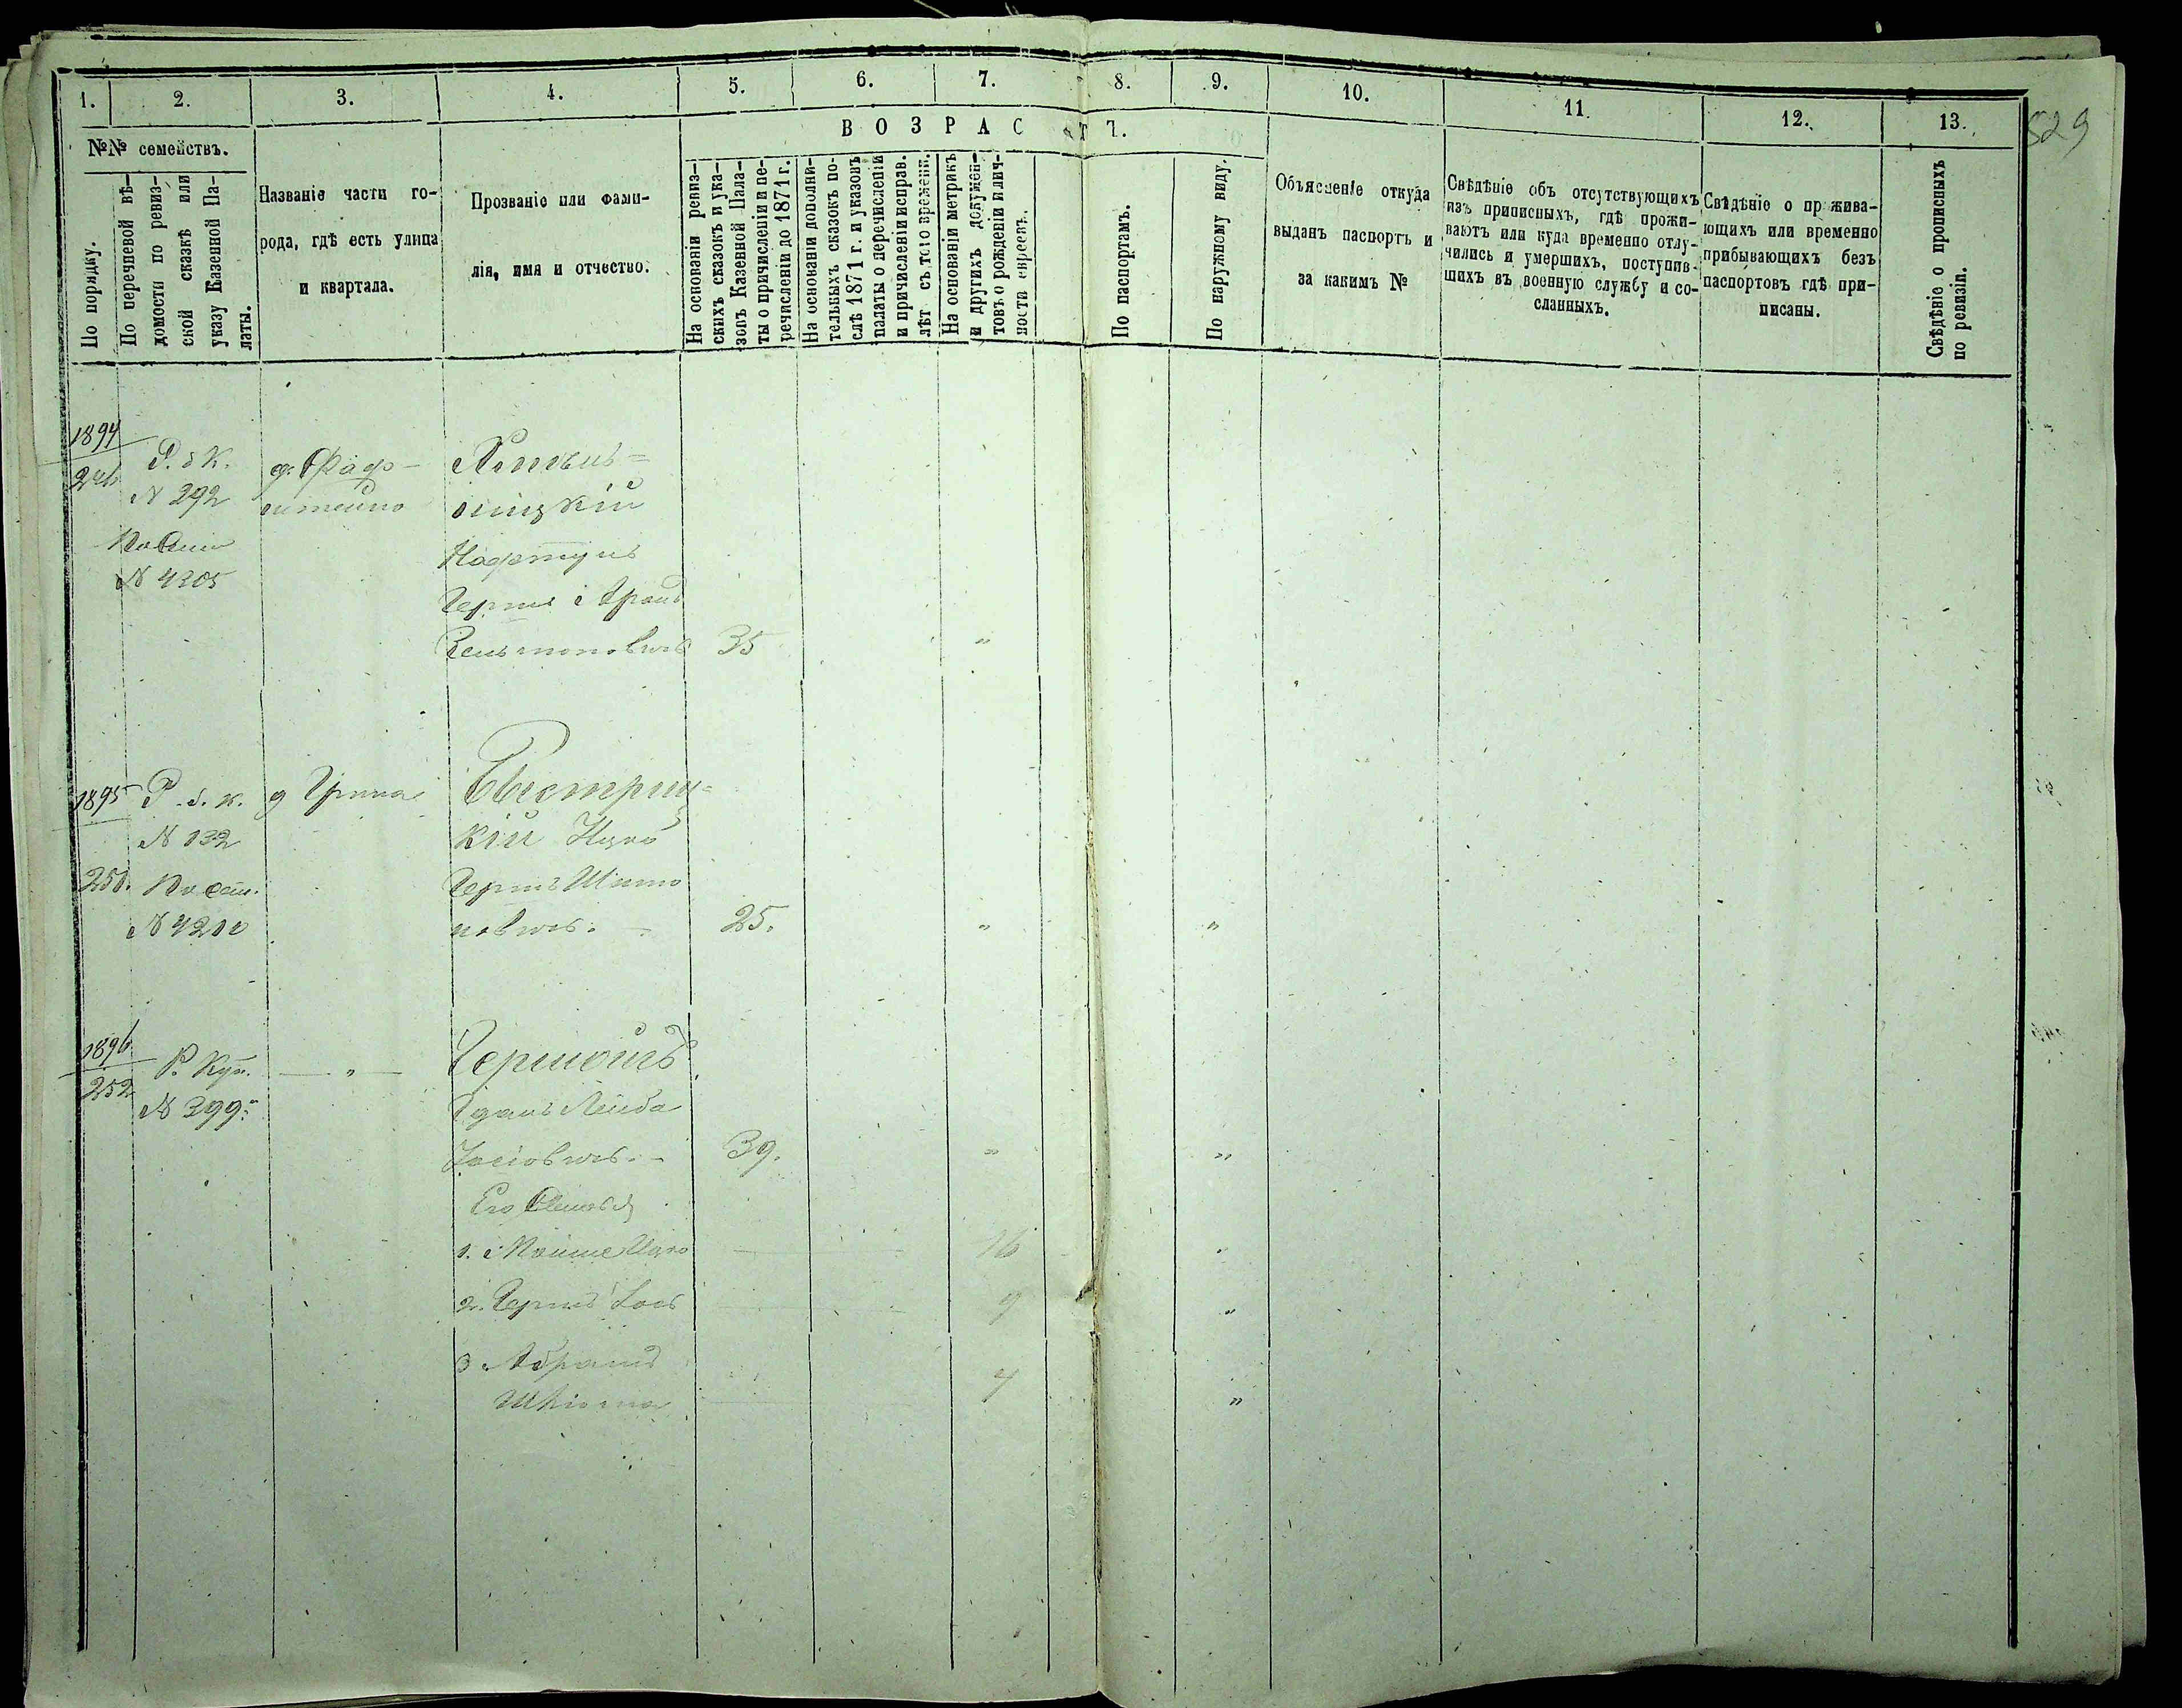 829
1. 2. 3. 4. 5. 6. 7. 8. 9. 10. 11. 12. 13.
В О З Р А С Т Ъ.
№№ семействъ.
По порядку.
По перечневой вѣ-
домости по ревиз-
ской сказкѣ или
указу Казенной Па-
латы.
Названіе части го-
рода, гдѣ есть улица
и квартала.
Прозваніе или фами-
лія, имя и отчество.
На основаніи ревиз-
скихъ сказокъ и ука-
зовъ Казенной Пала-
ты о причисленіи и пе-
речисленіи до 1871 г.
На основаніи дополни-
тельныхъ сказокъ по-
слѣ 1871 г. и указовъ
палаты о перечисленіи
и причисленіи исправ.
лѣт съ того времени.
На основаніи метрикъ
и другихъ докумен-
товъ о рожденіи и лич-
ности евреевъ.
По паспортамъ.
По наружному виду.
Объясненіе откуда
выданъ паспортъ и
за какимъ №
Свѣдѣніе объ отсутствующихъ
изъ приписныхъ, гдѣ прожи-
ваютъ или куда временно отлу-
чились и умершихъ, поступив-
шихъ въ военную службу и со-
сланныхъ.
Свѣдѣніе о прожива-
ющихъ или временно
прибывающихъ безъ
паспортовъ гдѣ при-
писаны.
Свѣдѣніе о прописныхъ
по ревизіи.
1894
Р. б К.
№ 392
№ 4305
ницкій
Нафтулъ
Герша
35 "
1895 Р. б. к.
№ 132
Быстриц-
кій Ицко
250.
Гершъ Шимо
№ 4210
новичъ. 25. " "
1896
252
Р. Куп.
№ 399.
— " —
Лейба
Іосіовичъ. 39. " "
Его Сыновья
1. Мойше Ицко 16 "
2. Гершъ 9 "
3 Абрамъ
Шліома 4 "